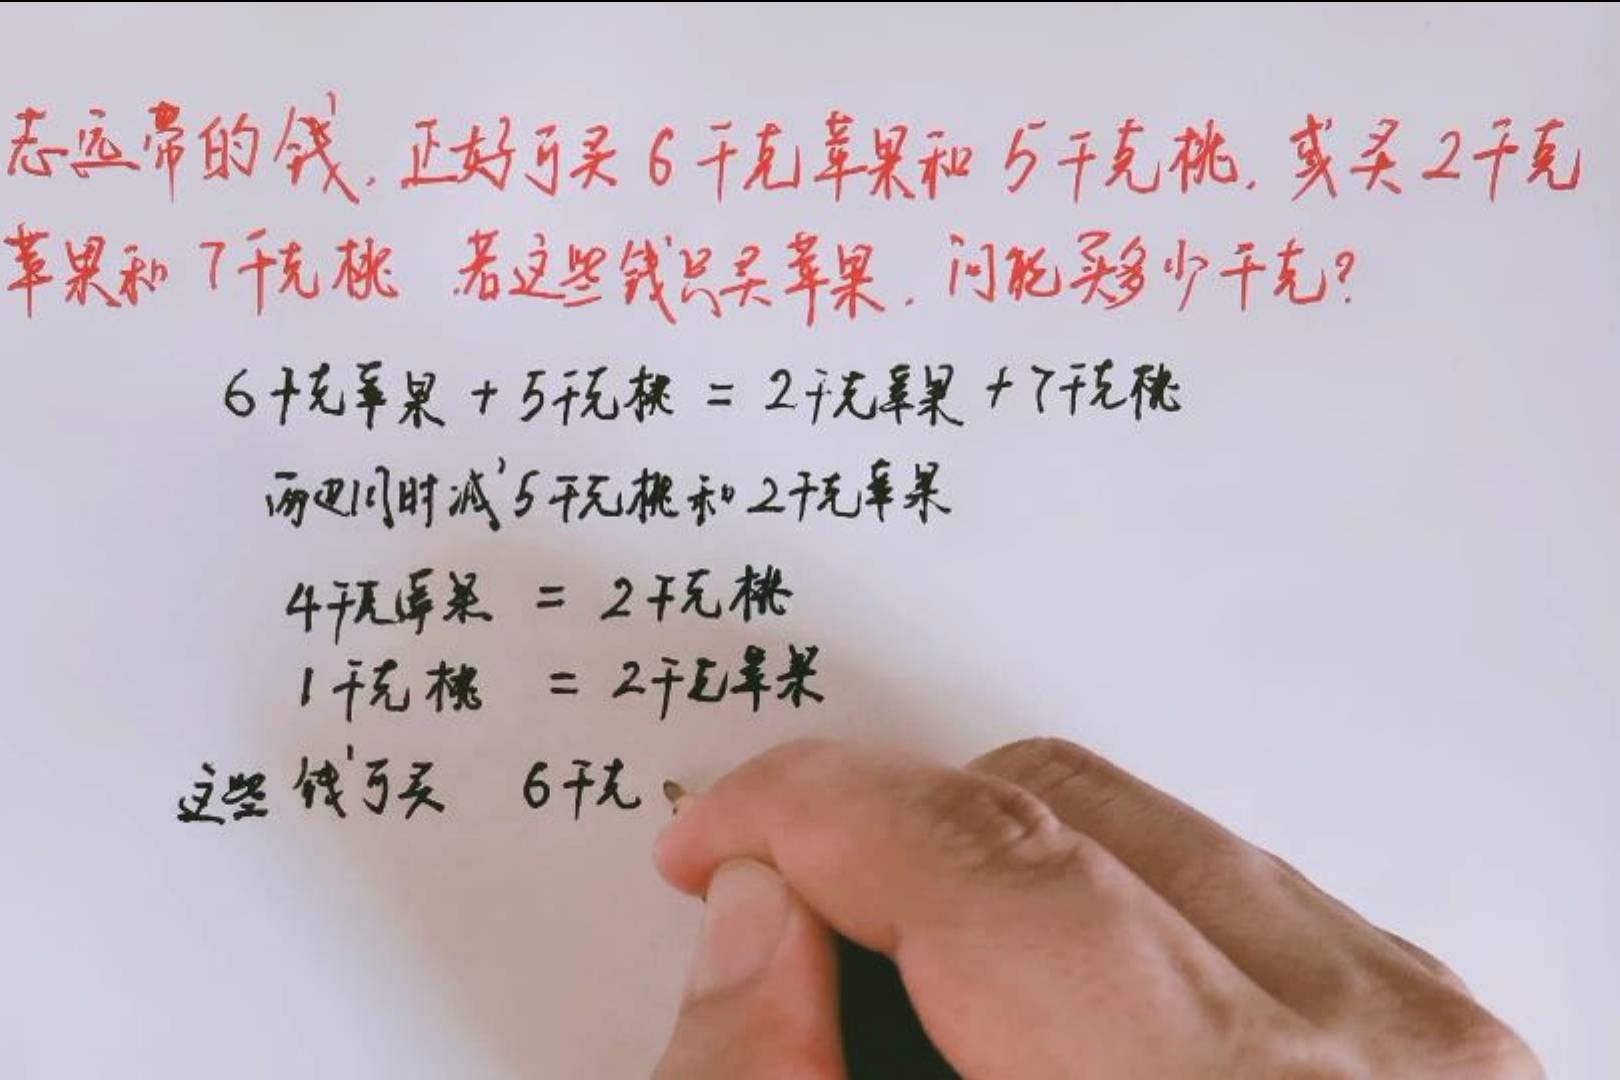 志远带的钱,正好可买6千克苹果和5千克桃,或买2千克
苹果和7千克桃.若这些钱只买苹果,问能买多少千克?
6千克苹果+5千克桃=2千克苹果+7千克桃
两边同时减5千克桃和2千克苹果
4千克苹果=2千克桃
1千克桃=2千克苹果
这些钱可买 6千克